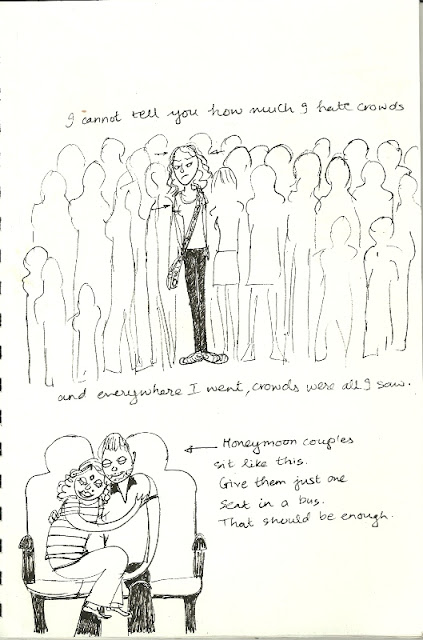 I cannot tell you how much I hate crowds
and everywhere I went, crowds were all I saw.
Honeymoon couples
sit like this.
Give them just one
seat in a bus.
That should be enough.